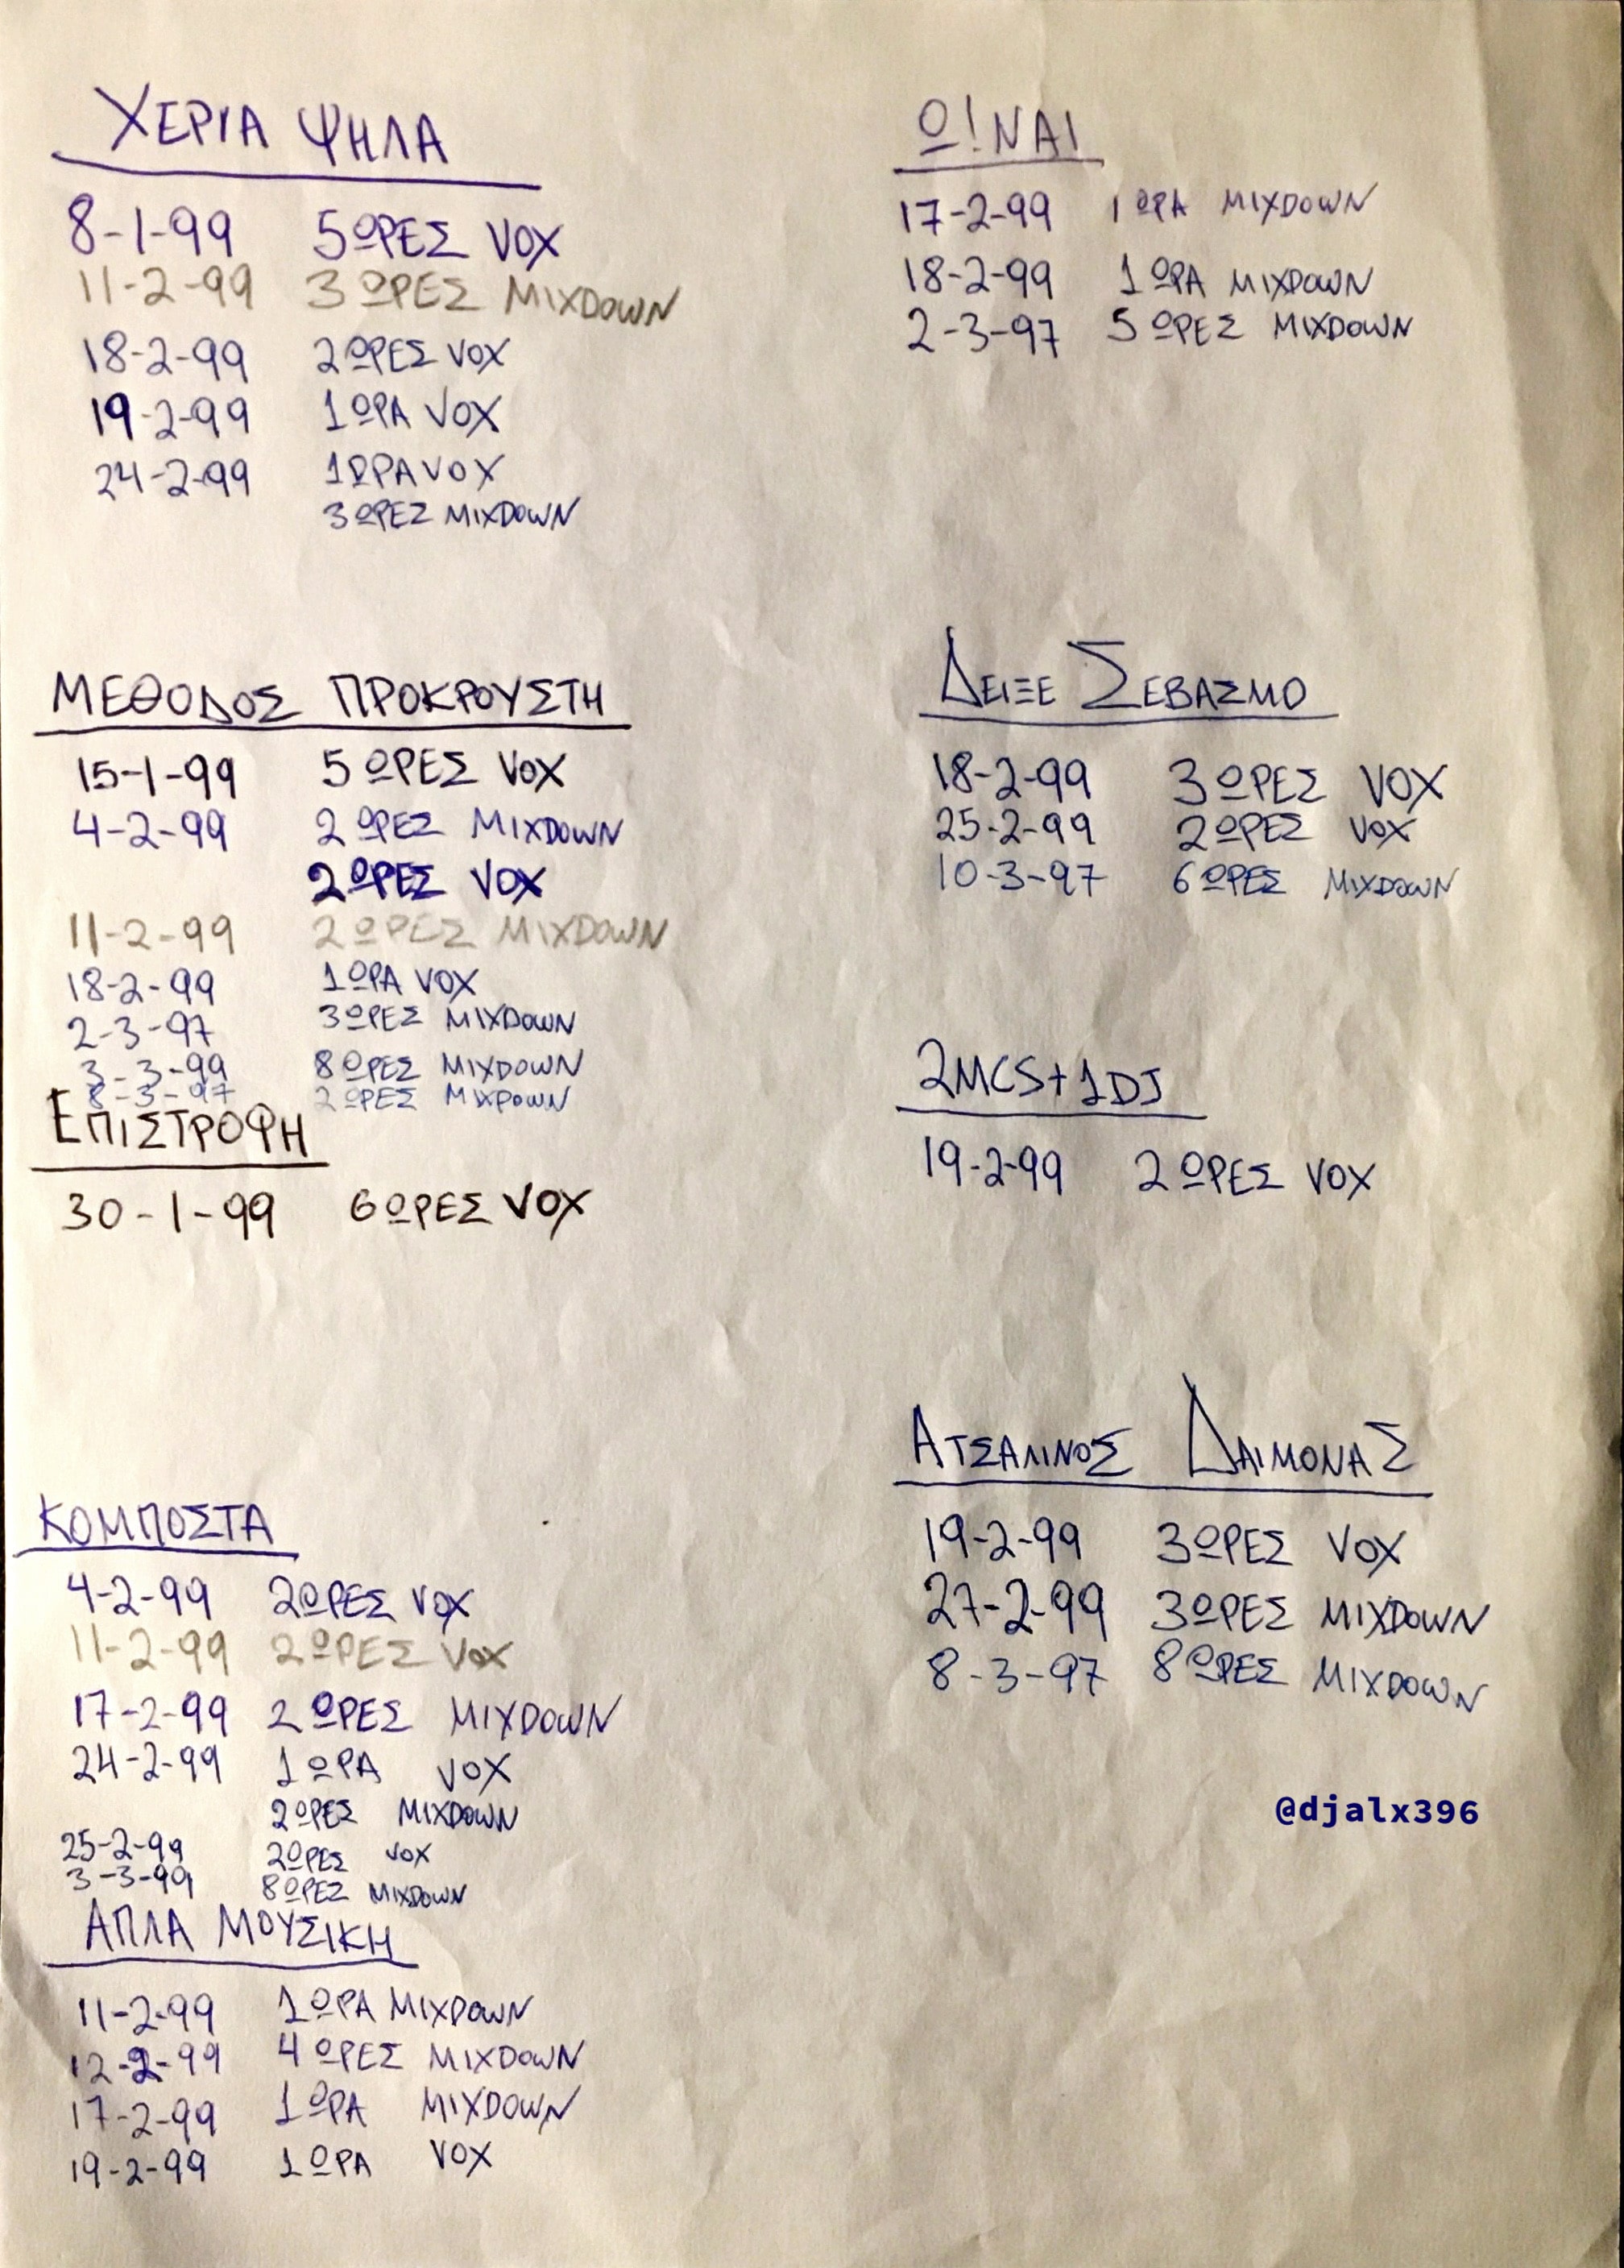 ΧΕΡΙΑ ΨΗΛΑ
8-1-99 5 ΩΡΕΣ VOX
11-2-99 3 ΩΡΕΣ MIXDOWN
18-2-99 2 ΩΡΕΣ VOX
19-2-99 1 ΩΡΑ VOX
24-2-99 1 ΩΡΑ VOX
3 ΩΡΕΣ MIXDOWN
ΜΕΘΟΔΟΣ ΠΡΟΚΡΟΥΣΤΗ
15-1-99 5 ΩΡΕΣ VOX
4-2-99 2 ΩΡΕΣ MIXDOWN
2 ΩΡΕΣ VOX
11-2-99 2 ΩΡΕΣ MIXDOWN
18-2-99 1 ΩΡΑ VOX
2-3-97 3 ΩΡΕΣ MIXDOWN
3-3-99 8 ΩΡΕΣ MIXDOWN
8-3-97 2 ΩΡΕΣ MIXDOWN
ΕΠΙΣΤΡΟΦΗ
30-1-99 6 ΩΡΕΣ VOX
ΚΟΜΠΟΣΤΑ
4-2-99 2 ΩΡΕΣ VOX
11-2-99 2 ΩΡΕΣ VOX
17-2-99 2 ΩΡΕΣ MIXDOWN
24-2-99 1 ΩΡΑ VOX
2 ΩΡΕΣ MIXDOWN
25-2-99 2 ΩΡΕΣ VOX
3-3-99 8 ΩΡΕΣ MIXDOWN
ΑΠΛΑ ΜΟΥΣΙΚΗ
11-2-99 1 ΩΡΑ MIXDOWN
12-2-99 4 ΩΡΕΣ MIXDOWN
17-2-99 1 ΩΡΑ MIXDOWN
19-2-99 1 ΩΡΑ VOX
Ω! ΝΑΙ
17-2-99 1 ΩΡΑ MIXDOWN
18-2-99 1 ΩΡΑ MIXDOWN
2-3-97 5 ΩΡΕΣ MIXDOWN
ΔΕΙΞΕ ΣΕΒΑΣΜΟ
18-2-99 3 ΩΡΕΣ VOX
25-2-99 2 ΩΡΕΣ VOX
10-3-97 6 ΩΡΕΣ MIXDOWN
2MCS+1DJ
19-2-99 2 ΩΡΕΣ VOX
ΑΤΣΑΛΙΝΟΣ ΔΑΙΜΟΝΑΣ
19-2-99 3 ΩΡΕΣ VOX
27-2-99 3 ΩΡΕΣ MIXDOWN
8-3-97 8 ΩΡΕΣ MIXDOWN
@djalx396